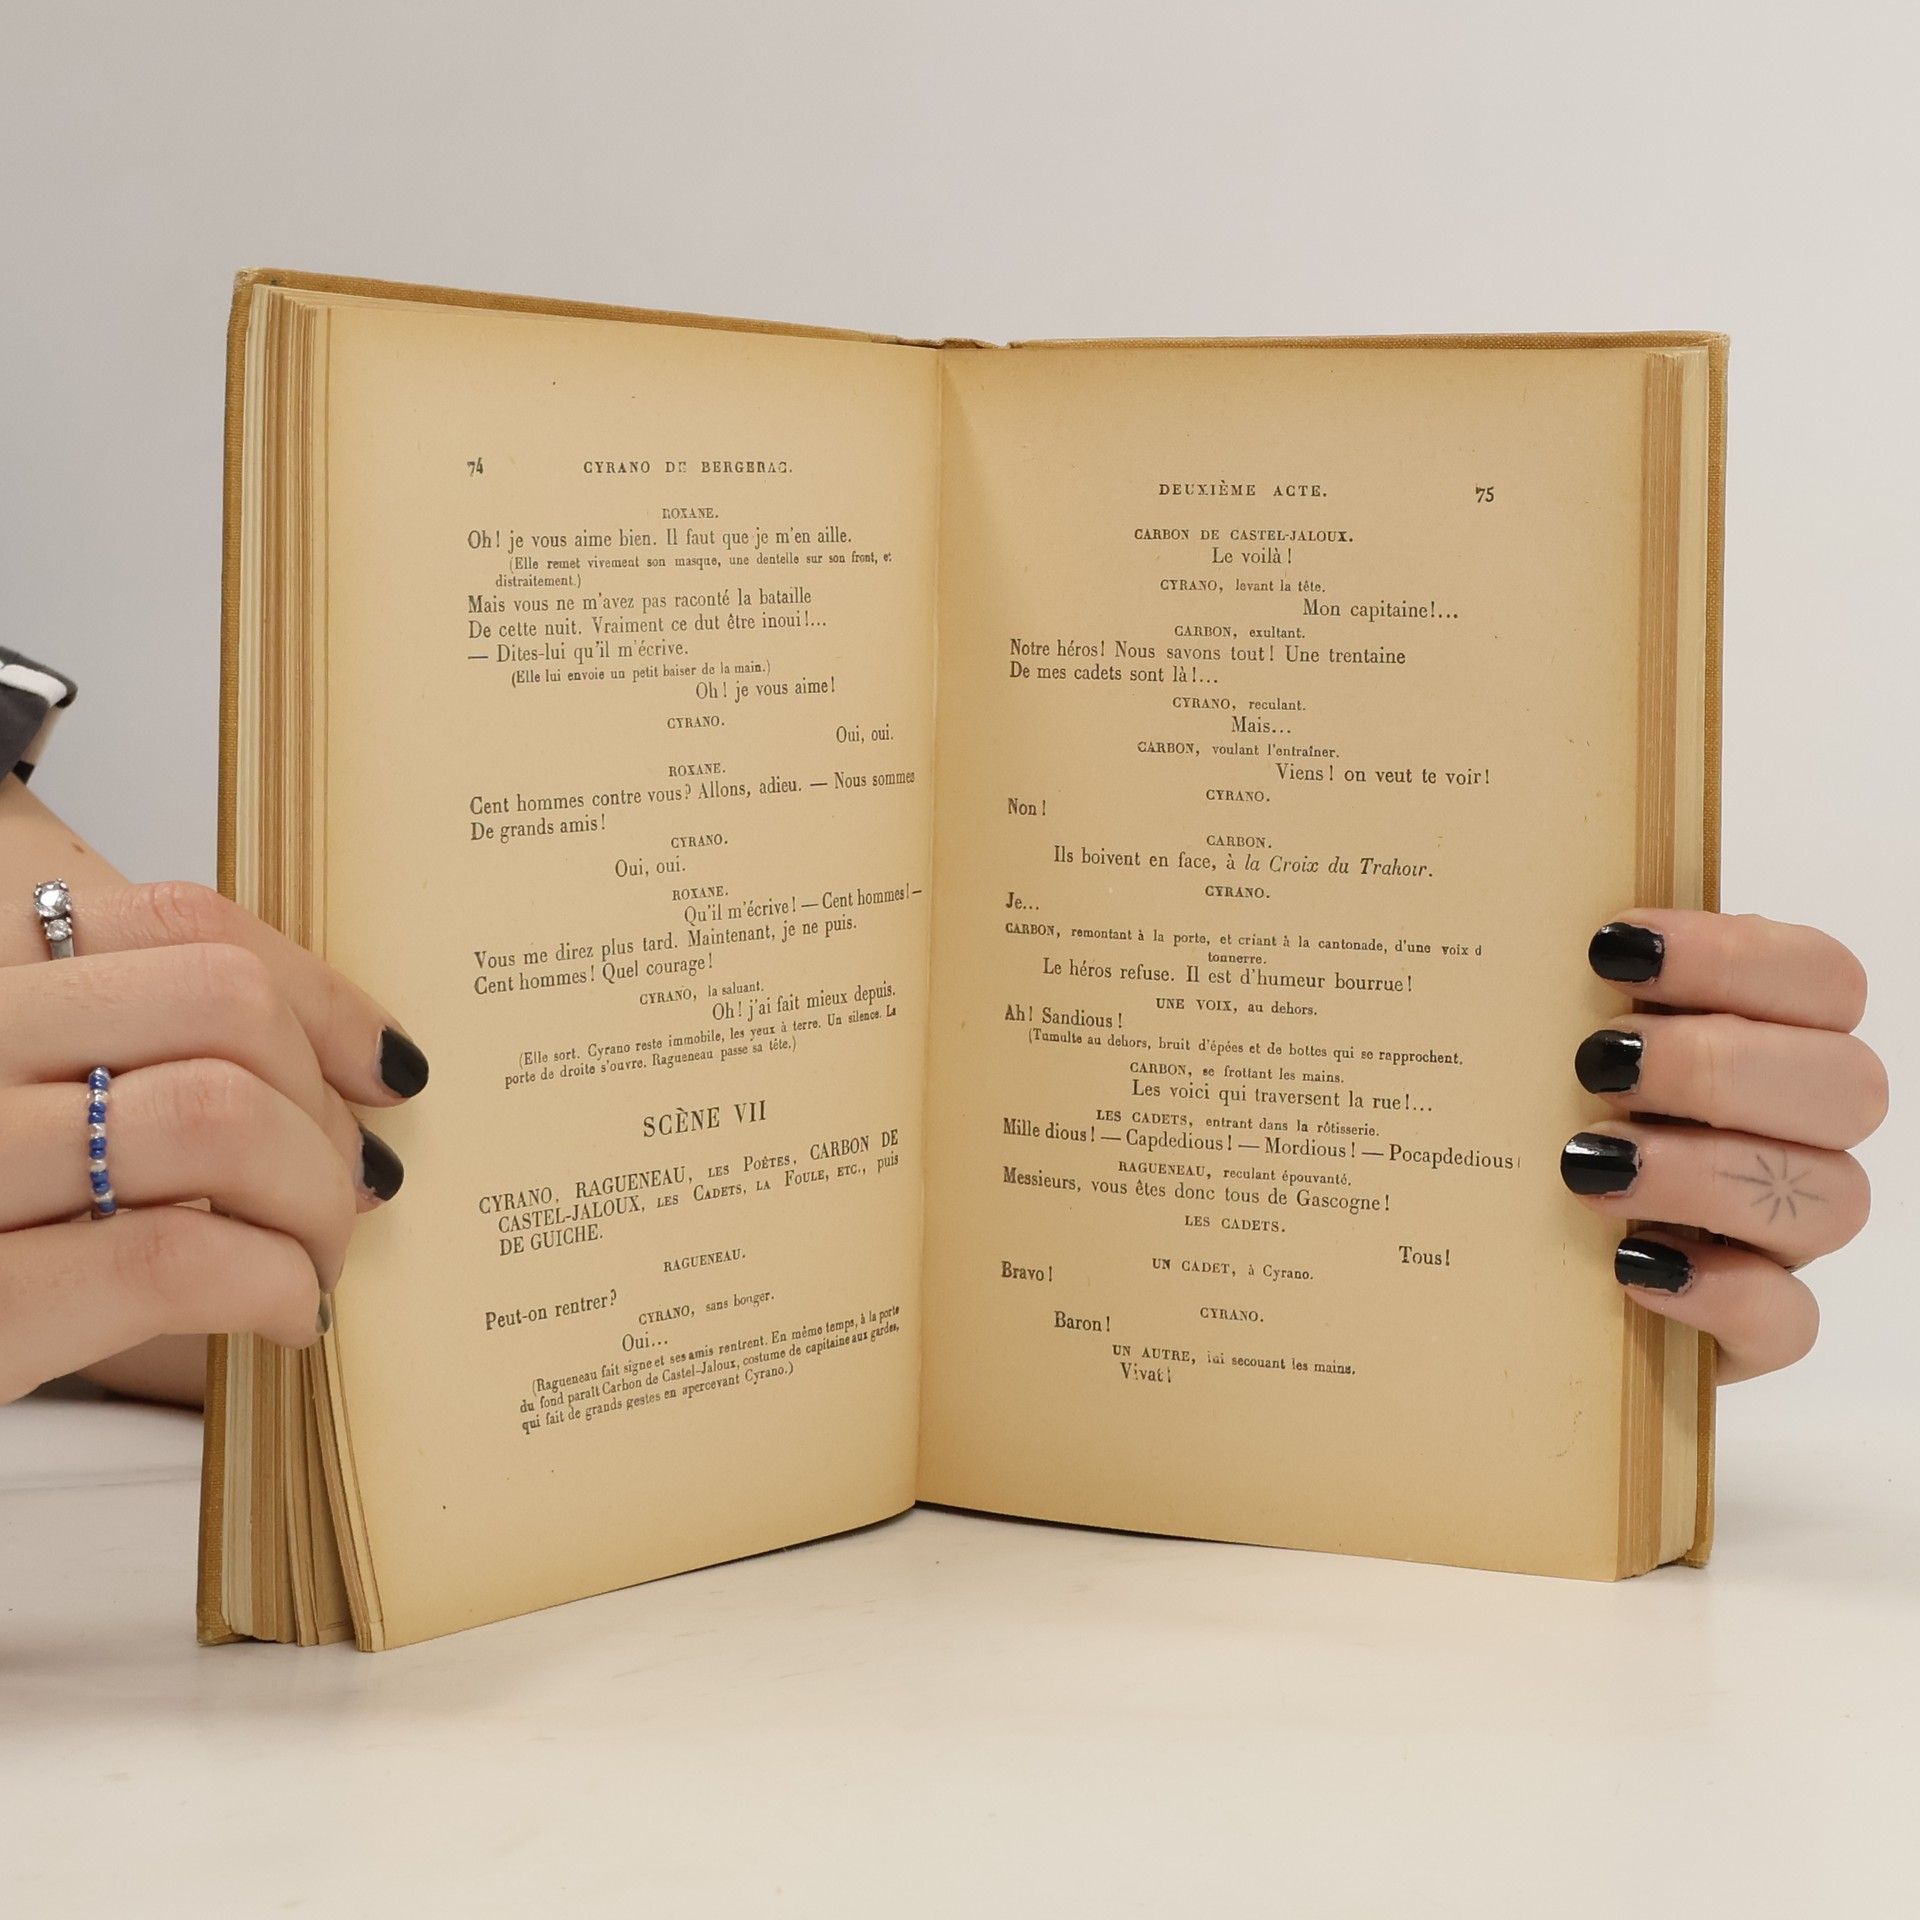 74 CYRANO DE BERGERAC.
ROXANE.
Oh! je vous aime bien. Il faut que je m'en aille.
(Elle remet vivement son masque, une dentelle sur son front, et
distraitement.)
Mais vous ne m'avez pas raconté la bataille
De cette nuit. Vraiment ce dut être inouï!...
— Dites-lui qu'il m'écrive.
(Elle lui envoie un petit baiser de la main.)
Oh! je vous aime!
CYRANO.
Oui, oui.
ROXANE.
Cent hommes contre vous? Allons, adieu. — Nous sommes
De grands amis!
CYRANO.
Oui, oui.
ROXANE.
Qu'il m'écrive! — Cent hommes! —
Vous me direz plus tard. Maintenant, je ne puis.
Cent hommes! Quel courage!
CYRANO, la saluant.
Oh! j'ai fait mieux depuis.
(Elle sort. Cyrano reste immobile, les yeux à terre. Un silence. La
porte de droite s'ouvre. Ragueneau passe sa tête.)
SCÈNE VII
CYRANO, RAGUENEAU, LES POÈTES, CARBON DE
CASTEL-JALOUX, LES CADETS, LA FOULE, ETC., puis
DE GUICHE.
RAGUENEAU.
Peut-on rentrer?
CYRANO, sans bouger.
Oui...
(Ragueneau fait signe et ses amis rentrent. En même temps, à la porte
du fond paraît Carbon de Castel-Jaloux, costume de capitaine aux gardes,
qui fait de grands gestes en apercevant Cyrano.)
DEUXIÈME ACTE. 75
CARBON DE CASTEL-JALOUX.
Le voilà!
CYRANO, levant la tête.
Mon capitaine!...
CARBON, exultant.
Notre héros! Nous savons tout! Une trentaine
De mes cadets sont là!...
CYRANO, reculant.
Mais...
CARBON, voulant l'entraîner.
Viens! on veut te voir!
CYRANO.
Non!
CARBON.
Ils boivent en face, à la Croix du Trahoir.
CYRANO.
Je...
CARBON, remontant à la porte, et criant à la cantonade, d'une voix d
tonnerre.
Le héros refuse. Il est d'humeur bourrue!
UNE VOIX, au dehors.
Ah! Sandious!
(Tumulte au dehors, bruit d'épées et de bottes qui se rapprochent.
CARBON, se frottant les mains.
Les voici qui traversent la rue!...
LES CADETS, entrant dans la rôtisserie.
Mille dious! — Capdedious! — Mordious! — Pocapdedious!
RAGUENEAU, reculant épouvanté.
Messieurs, vous êtes donc tous de Gascogne!
LES CADETS.
Tous!
UN CADET, à Cyrano.
Bravo!
CYRANO.
Baron!
UN AUTRE, lui secouant les mains.
Vivat!